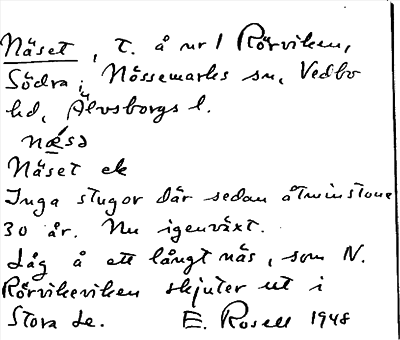 Näset, T. å nr 1 Rörviken,
Södra, Nössemarks sn, Vedbo
hd, Älvsborgs l.
nǽsə
Näset ek
Inga stugor där sedan åtminstone
30 år. Nu igenväxt.
Låg å ett långt näs, som N.
Rörvikeviken skjuter ut i
Stora Le. E. Rosell 1948